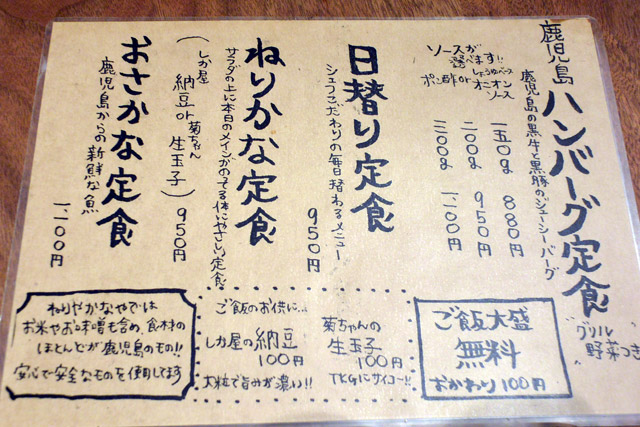 鹿児島ハンバーグ定食
グリル
野菜つき
鹿児島の黒牛と黒豚のジューシーバーグ
ソースが
選べます!!
しょうゆベース
ポン酢orオニオン
ソース
一五〇g 880円
二〇〇g 950円
三〇〇g 1,100円
日替り定食
シェフこだわりの毎日替わるメニュー
950円
ねりかな定食
サラダの上に本日のメインがのてる体にやさしい定食
しか屋 納豆or菊ちゃん 生玉子
950円
おさかな定食
鹿児島からの新鮮な魚
1,100円
ご飯大盛
無料
おかわり100円
ご飯のお供に…
菊ちゃんの
生玉子
100円
TKGにサイコー!!
しか屋の納豆
100円
大粒で旨みが濃い!!
ねりやかなやでは
お米やお味噌も含め、食材の
ほとんどが鹿児島のもの!!
安心で安全なものを使用してます